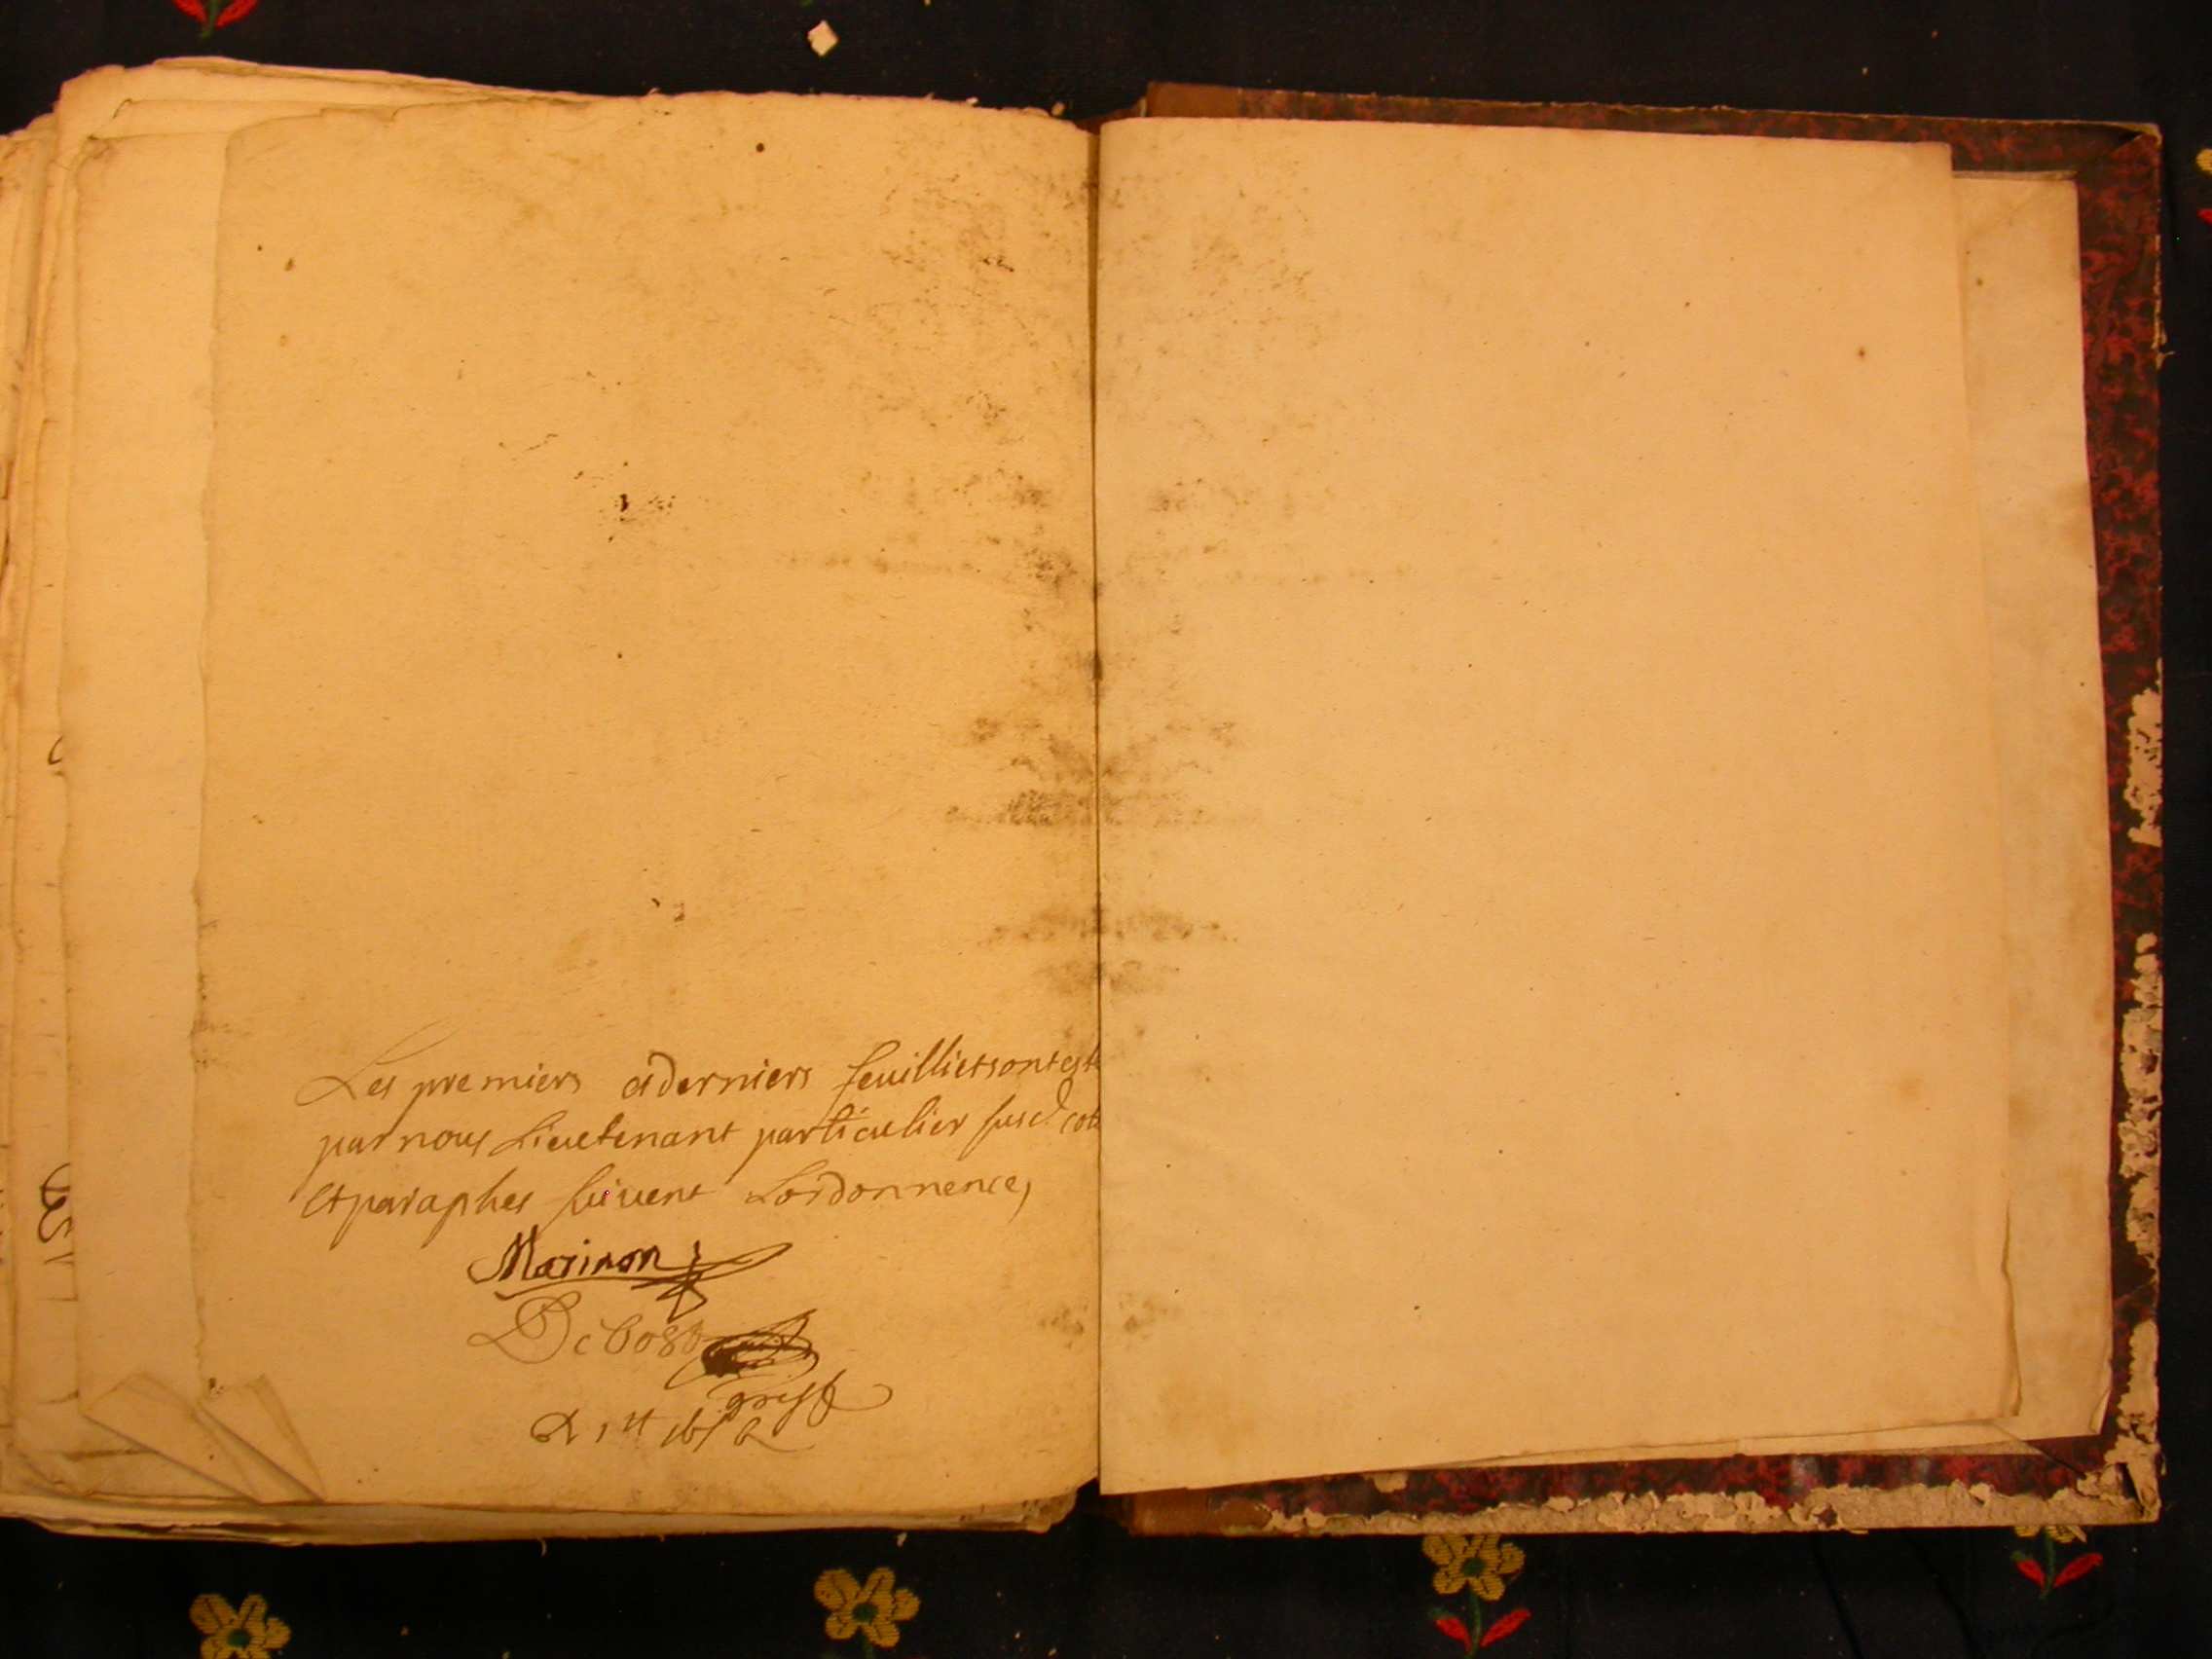 Les premiers et derniers feuilliet sont esté
par nous Lieutenant particulier susd cot
Et paraphes suivent Lordonnence,
Marinon
Debost
greff